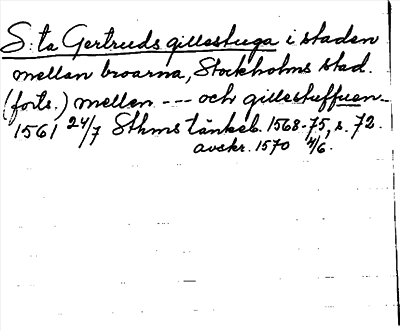 S:ta Gertruds gillestuga i staden
mellan broarna, Stockholms stad.
(forts.) mellan --- och gillestuffuen -
1561 24/7 Sthms tänkeb. 1568-75, s. 72.
avskr. 1570 4/6.